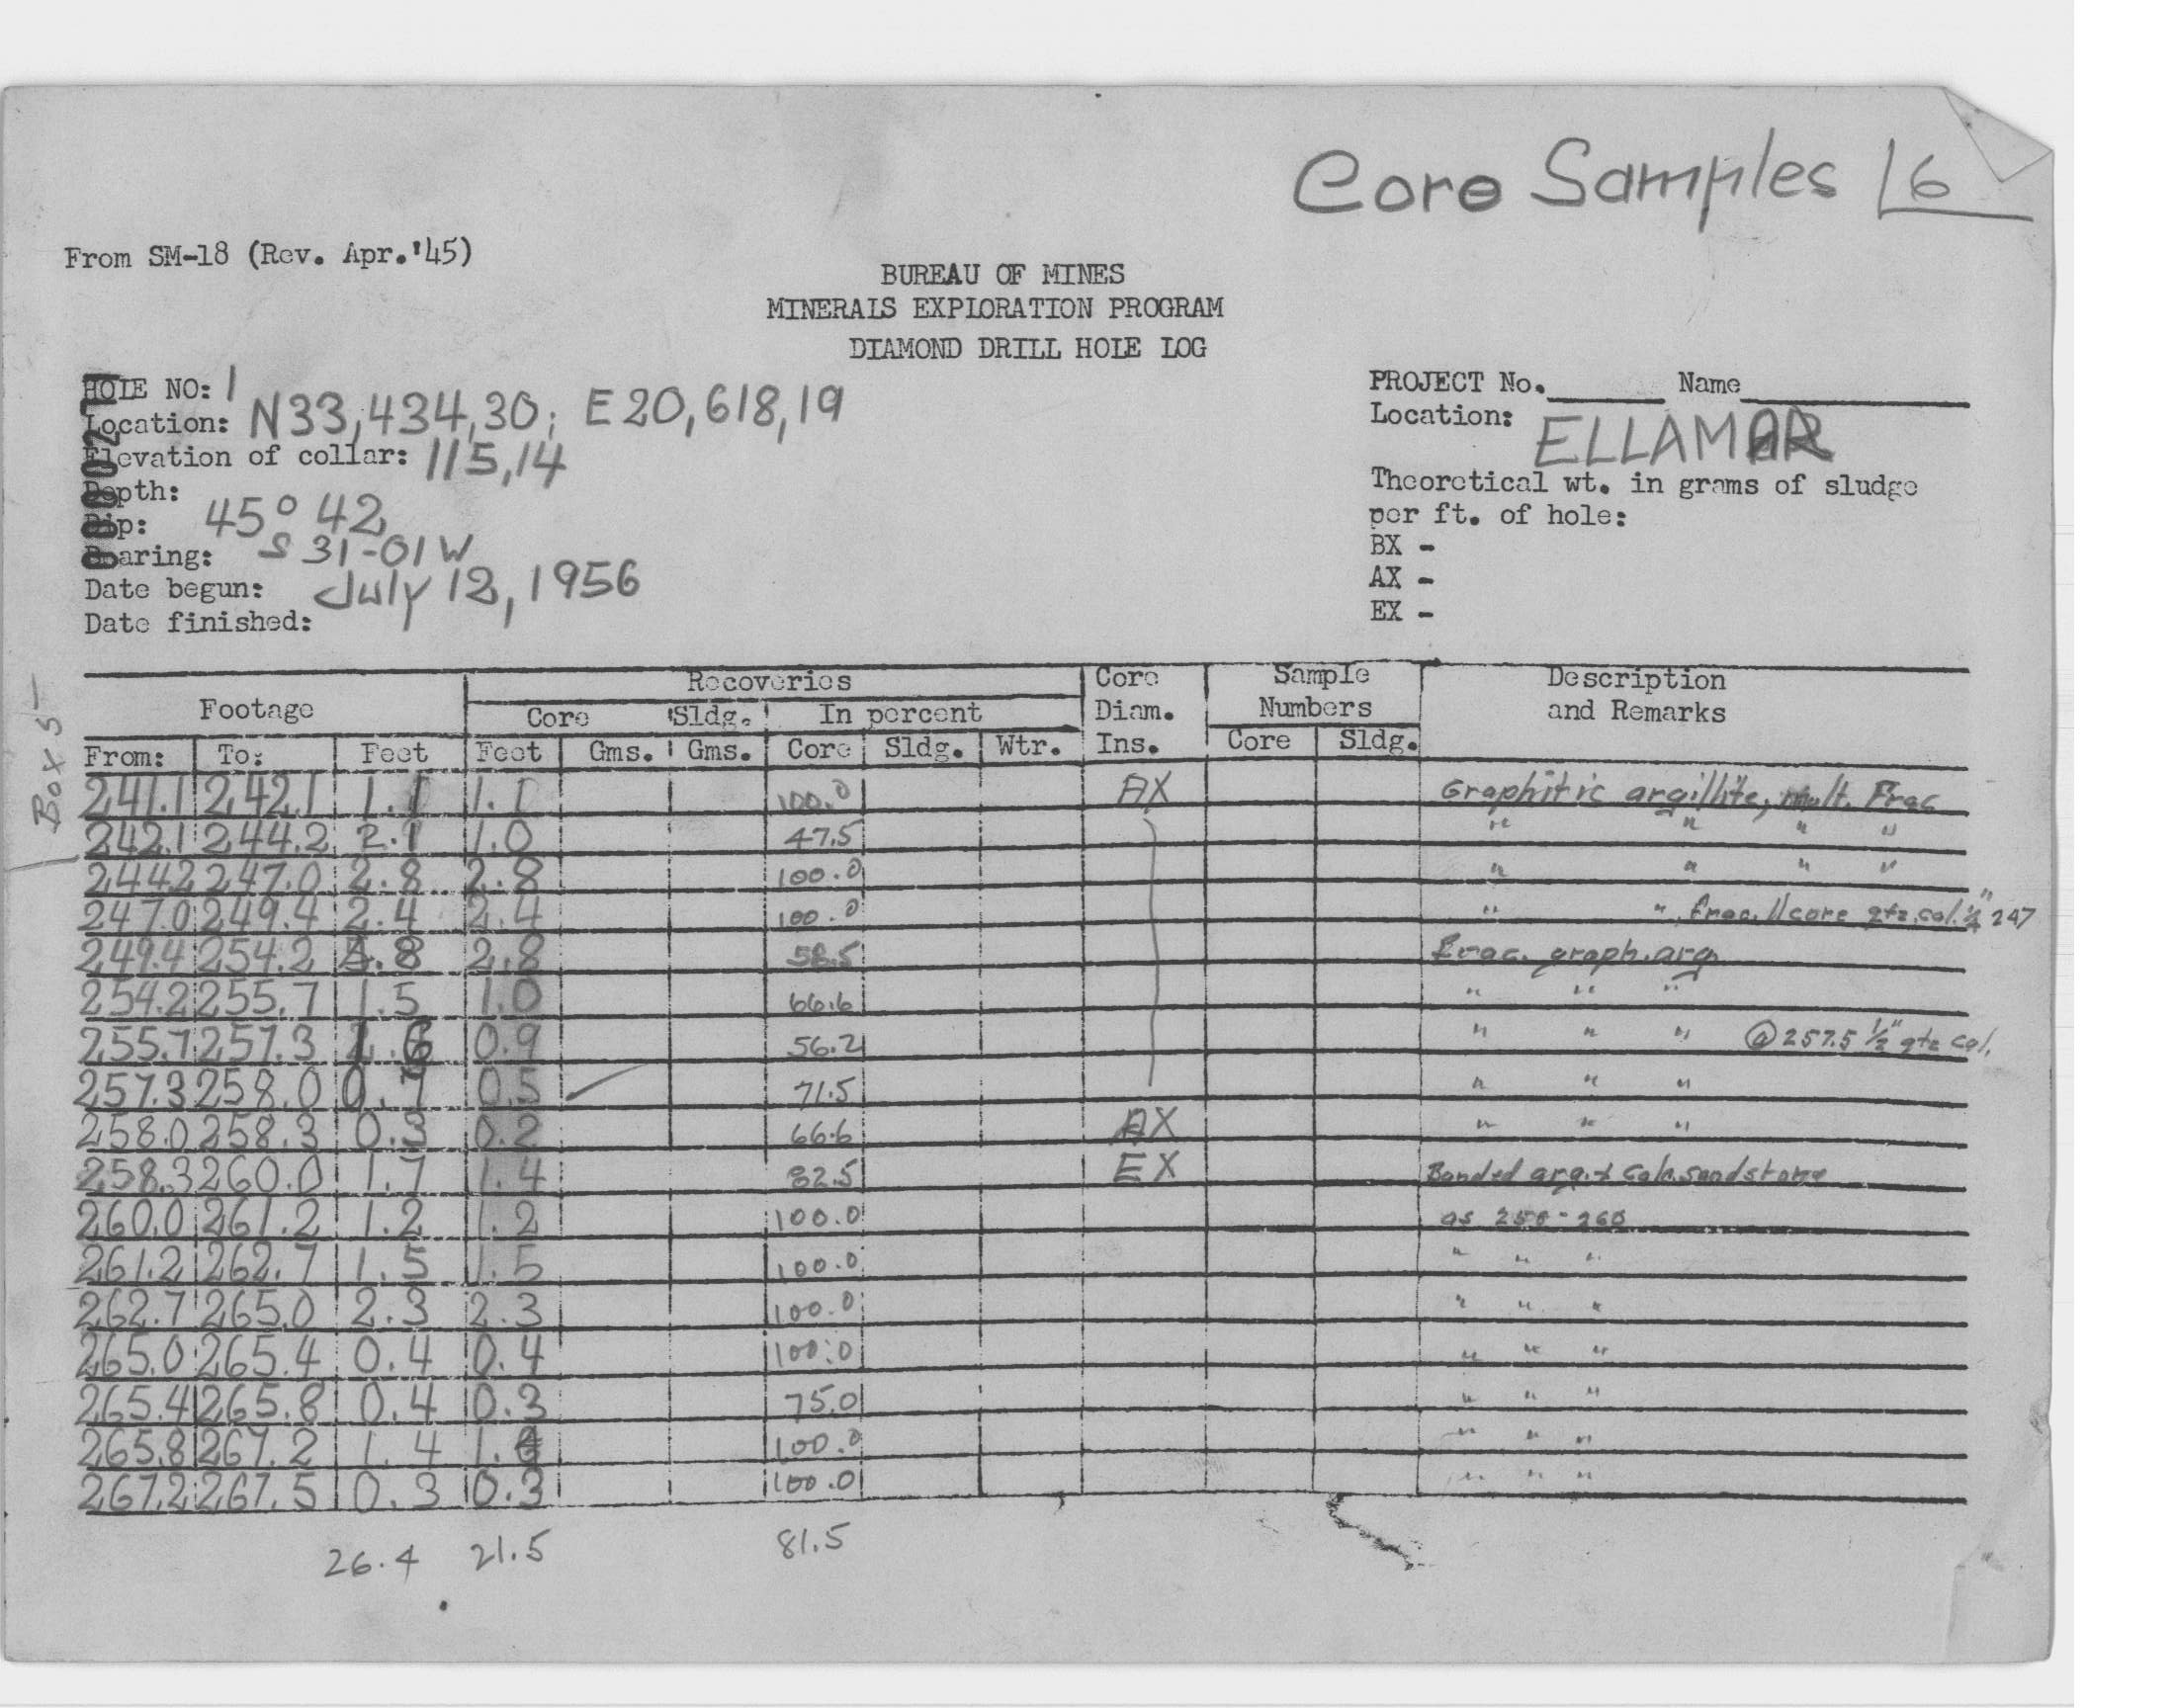 Core Samples 16
From SM-18 (Rev. Apr.'45)
BUREAU OF MINES
MINERALS EXPLORATION PROGRAM
DIAMOND DRILL HOLE LOG
HOLE NO: 1
Location: N33,434,30; E20,618,19
Elevation of collar: 115,14
Depth:
Dip: 45° 42
Bearing: S 31-01W
Date begun: July 12, 1956
Date finished:
PROJECT No. Name
Location: ELLAMAR
Theoretical wt. in grams of sludge
per ft. of hole:
BX -
AX -
EX -
Box 5
Footage Recoveries Core Diam. Ins. Sample Numbers Description and Remarks
Core Sldg. In percent
From: To: Feet Feet Gms. Gms. Core Sldg. Wtr. Core Sldg.
241.1 242.1 1.1 1.1 100.0 AX Graphitic argillite, mult. Frac
242.1 244.2 2.1 1.0 47.5 " " " "
244.2 247.0 2.8 2.8 100.0 " " " "
247.0 249.4 2.4 2.4 100.0 " " frac. // core qtz. cal. 247
249.4 254.2 4.8 2.8 58.5 Frac. graph. arg
254.2 255.7 1.5 1.0 66.6 " " "
255.7 257.3 1.6 0.9 56.2 " " " @ 257.5 ½" qtz cal.
257.3 258.0 0.7 0.5 71.5 " " "
258.0 258.3 0.3 0.2 66.6 AX " " "
258.3 260.0 1.7 1.4 82.5 EX Banded arg. + calc. sandstone
260.0 261.2 1.2 1.2 100.0 as 258-260
261.2 262.7 1.5 1.5 100.0 " " "
262.7 265.0 2.3 2.3 100.0 " " "
265.0 265.4 0.4 0.4 100.0 " " "
265.4 265.8 0.4 0.3 75.0 " " "
265.8 267.2 1.4 1.4 100.0 " " "
267.2 267.5 0.3 0.3 100.0 " " "
26.4 21.5 81.5